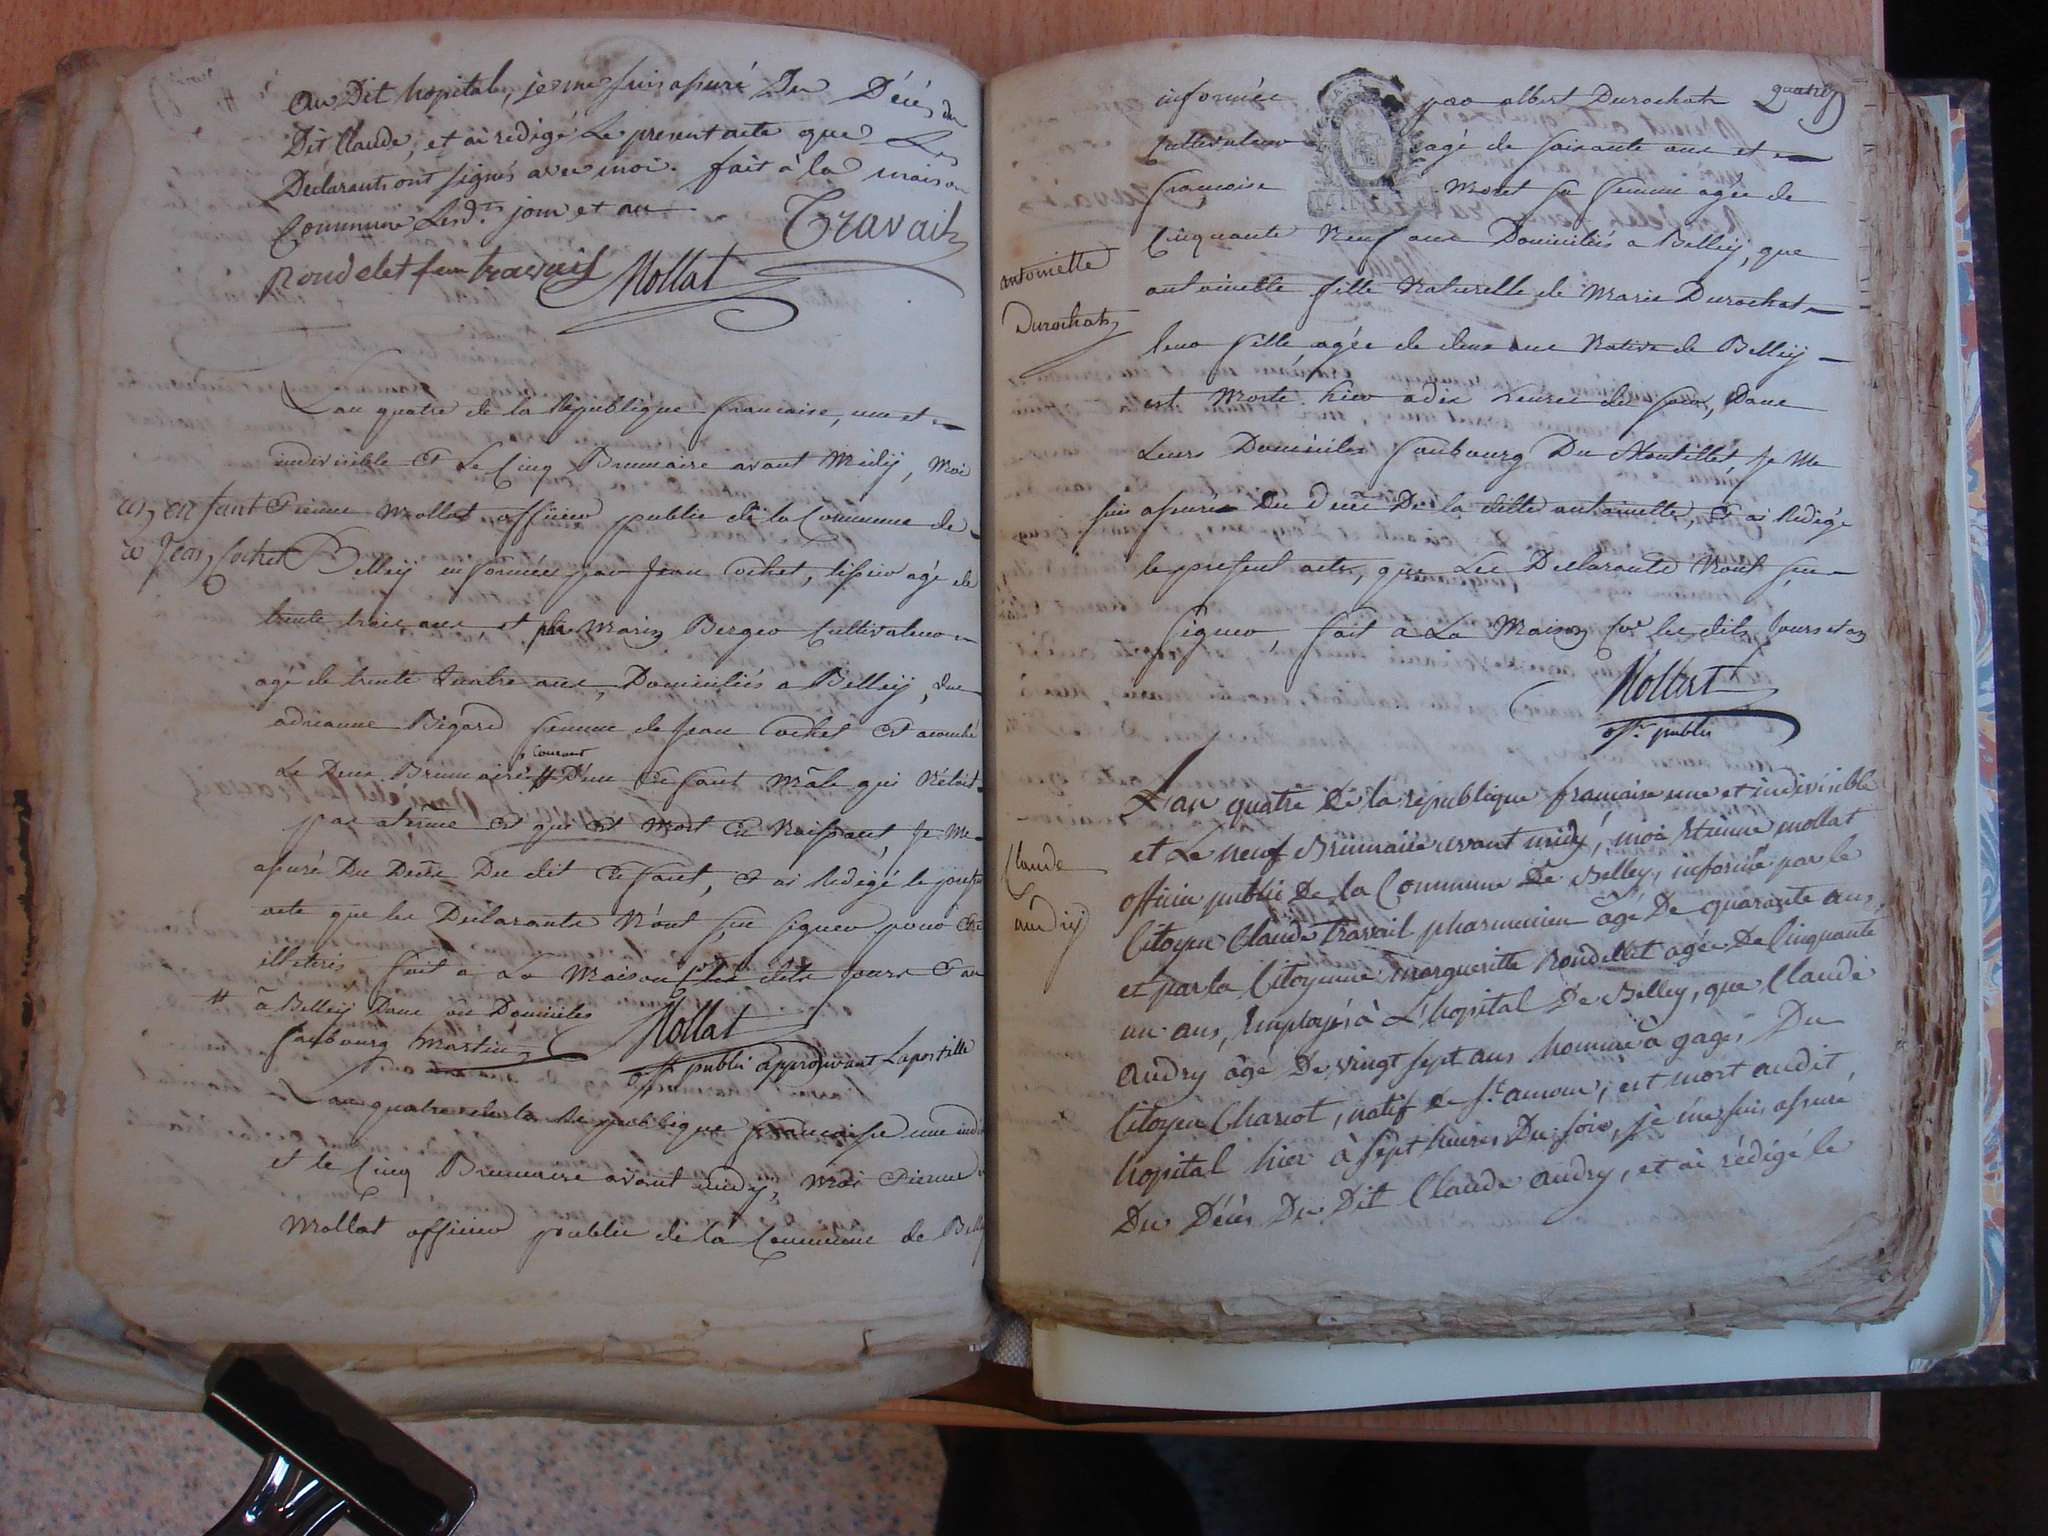 Au Dit hopital, je me suis assuré Du Décès du
Dit Claude, et ai rédigé Le present acte que Les
Déclarants ont signés avec moi. fait à la maison
Commune Lesd.ts jour et an
Travail
Rondelet fem travail Mollat
L'an quatre de la République francaise, une et
indivisible & Le Cinq Brumaire avant Midy, Moi
un enfant Etienne Mollat officier public de la Commune de
a Jean Cochet Belley informée par Jean Cochet, tissier agé de
trente trois ans et par Marin Berger Cultivateur
agé de trente quatre ans, Domiciliés a Belley, que
adrianne Bigard femme de Jean Cochet Est acouché
courant
Le Deux Brumaire # D'un Enfant Mâle qui N'étoit
pas aterme et qui Est Mort En Naissant, Je Me
assuré Du Decès Du dit Enfant, & ai Redigé le present
acte que les Declarants N'ont sçu signer pour Etre
illeteris, fait a La Maison Cne les dits jours & an
# à Belley Dans son Domiciles
faubourg Martin Mollat
off. public approuvant Lapostille
L'an quatre de la Republique francaise une indi
et le Cinq Brumaire avant Midy, Moi Etienne
Mollat officier public de la Commune de Belley
quatre
informée par albert Durochat
Cultivateur agé de soixante ans et
francaise Moret sa femme agée de
Cinquante Neuf ans Domiciliés a Belley, que
antoinette
Durochat
antoinette fille Naturelle de Marie Durochat
leur fille agée de deux ans Native de Belley
est Morte hier a dix heures du soir, Dans
Leurs Domiciles faubourg Du Montillet, Je Me
suis assurée Du decès De la ditte antoinette, & ai Redigé
le present acte, que Les Declarants N'ont sçu
signer, fait a La Maison Cne les dits Jours et an
Mollat
off. public
L'an quatre de la république francaise une et indivisible
et Le neuf Brumaire avant midy, moi Etienne mollat
Claude
audry
officier public De la Commune De Belley, informé par le
Citoyen Claude Travail pharmacien âgé De quarante ans,
et par la Citoyenne margueritte Rondellet agée De Cinquante
un ans, Employés à L'hopital De Belley, que Claude
Audry âgé De vingt sept ans homme à gages Du
Citoyen Charcot, natif de St. amour, est mort audit
hopital hier à sept heures Du soir, je me suis assuré
Du Décès Du Dit Claude audry, et ai rédigé le